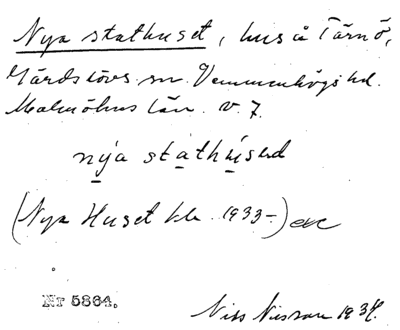 Nya stathuset, hus å Tärnö,
Gärdslövs sn. Vemmenhögs hd.
Malmöhus län. v. 7.
nya stathused
(Nya Huset kla. 1933-)
Nr 5864.
Nils Nilsson 1934.